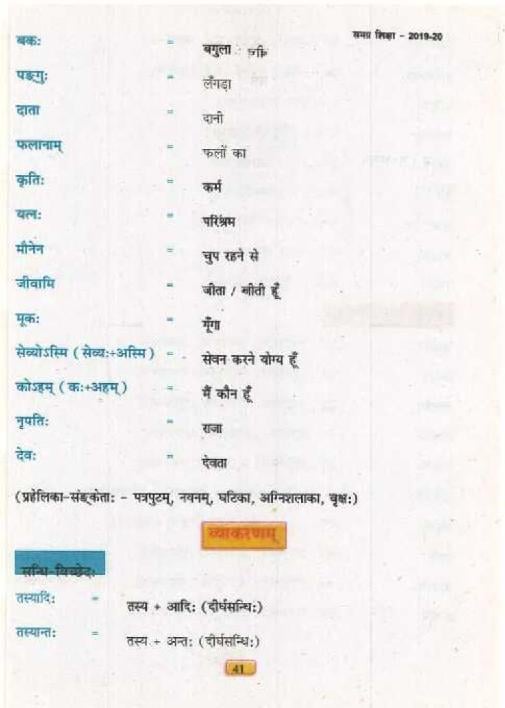 समग्र शिक्षा - 2019-20
बकः = बगुला
पङ्गुः = लँगड़ा
दाता = दानी
फलानाम् = फलों का
कृतिः = कर्म
यत्नः = परिश्रम
मौनेन = चुप रहने से
जीवामि = जीता / जीती हूँ
मूकः = गूँगा
सेव्योऽस्मि ( सेव्यः+अस्मि ) = सेवन करने योग्य हूँ
कोऽहम् ( कः+अहम् ) = मैं कौन हूँ
नृपतिः = राजा
देवः = देवता
(प्रहेलिका-संङ्केताः - पत्रपुटम्, नवनम्, घटिका, अग्निशलाका, वृक्षः)
व्याकरणम्
सन्धि-विच्छेदः
तस्यादिः = तस्य + आदिः (दीर्घसन्धिः)
तस्यान्तः = तस्य + अन्तः (दीर्घसन्धिः)
41